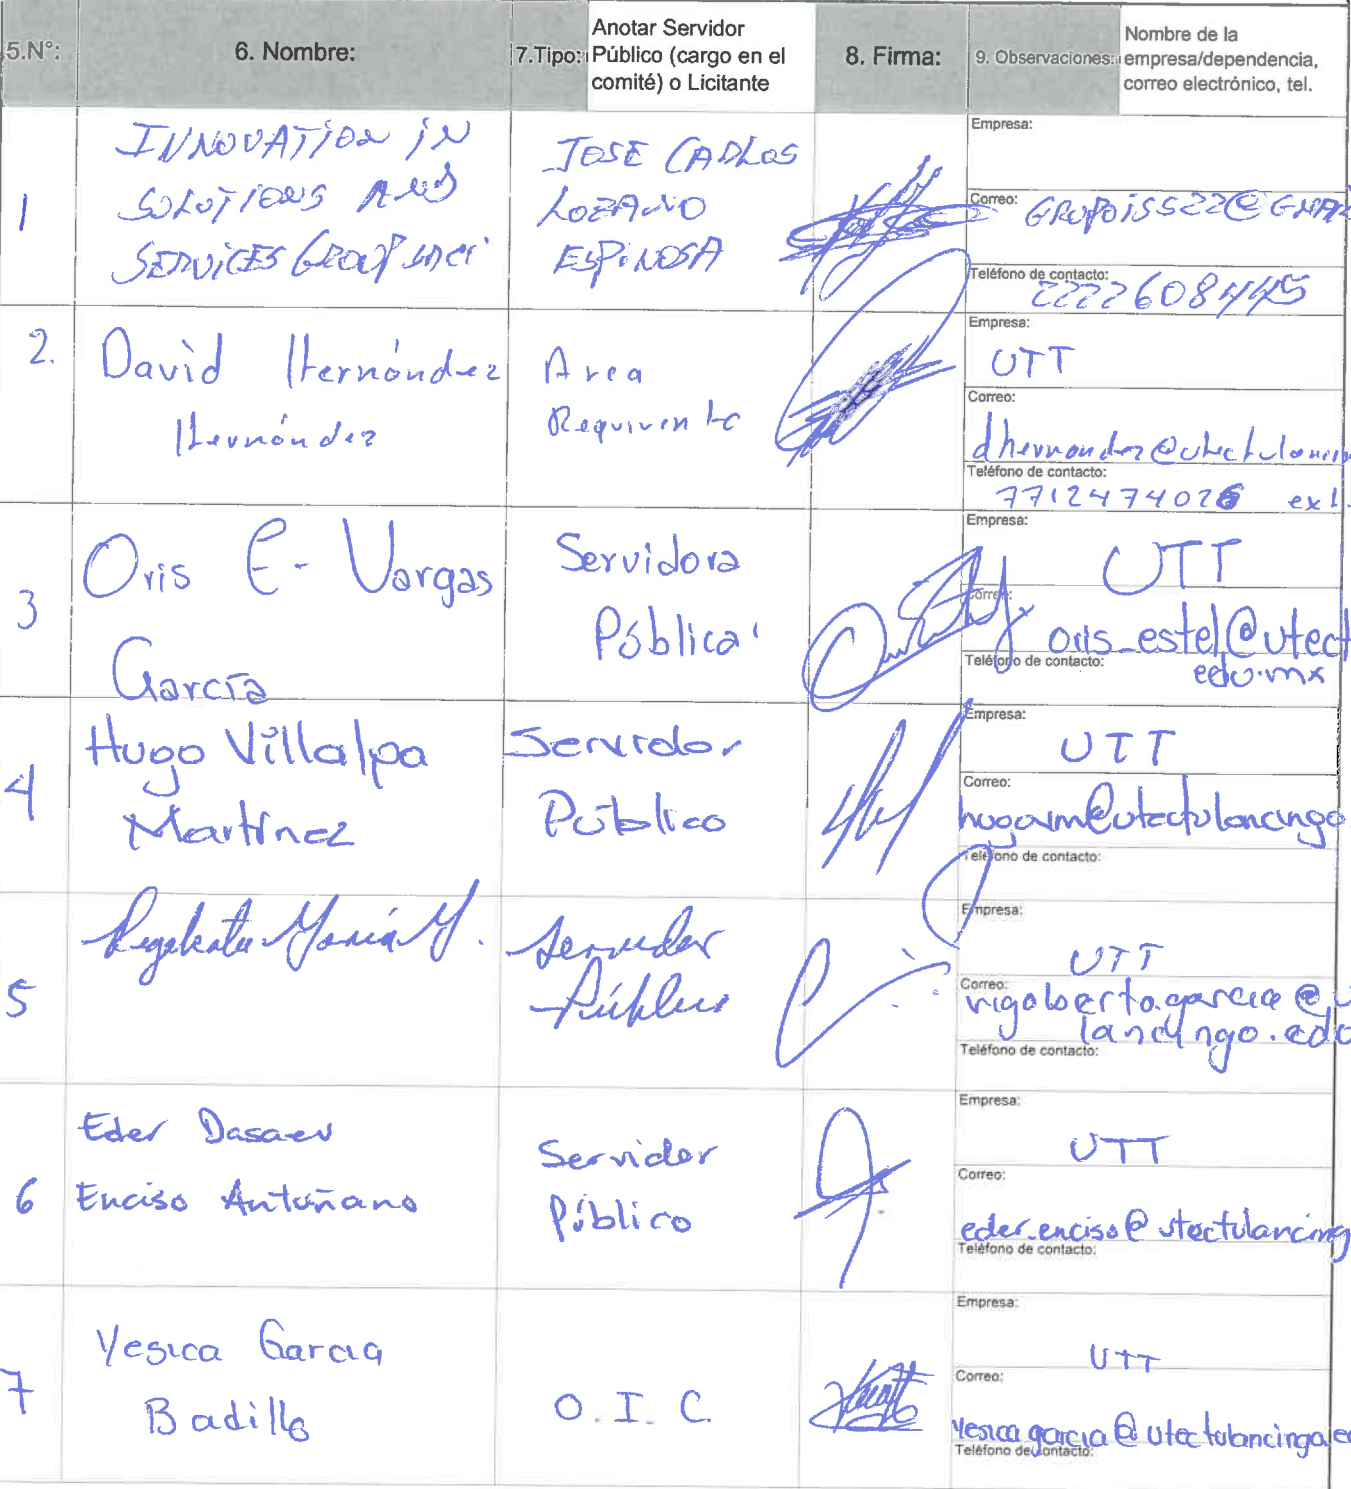 5.N°:
6. Nombre:
7.Tipo:
Anotar Servidor
Público (cargo en el
comité) o Licitante
8. Firma:
9. Observaciones:
Nombre de la
empresa/dependencia,
correo electrónico, tel.
1
INNOVATION IN
SOLUTIONS AND
SERVICES GROUP
JOSE CARLOS
LOZANO
ESPINOSA
Empresa:
Correo: GRUPOISS22@GMAI
Teléfono de contacto:
2222608445
2.
David Hernández
Hernández
Area
Requirente
Empresa:
UTT
Correo:
dhernandez@utectulanci
Teléfono de contacto:
7712474026 ext.
3
Oris E. Vargas
García
Servidora
Pública
Empresa:
UTT
Correo:
oris_estel@utect
Teléfono de contacto:
edu.mx
4
Hugo Villalpa
Martínez
Servidor
Público
Empresa:
UTT
Correo:
hugovm@utectulancingo
Teléfono de contacto:
5
Rigoberto García M.
Servidor
Público
Empresa:
UTT
Correo:
rigoberto.garcia@u
lancingo.edu
Teléfono de contacto:
6
Eder Dasaev
Enciso Antuñano
Servidor
Público
Empresa:
UTT
Correo:
eder.enciso@utectulancing
Teléfono de contacto:
7
Yesica Garcia
Badillo
O.I.C.
Empresa:
UTT
Correo:
yesica.garcia@utectulancingo.e
Teléfono de contacto: